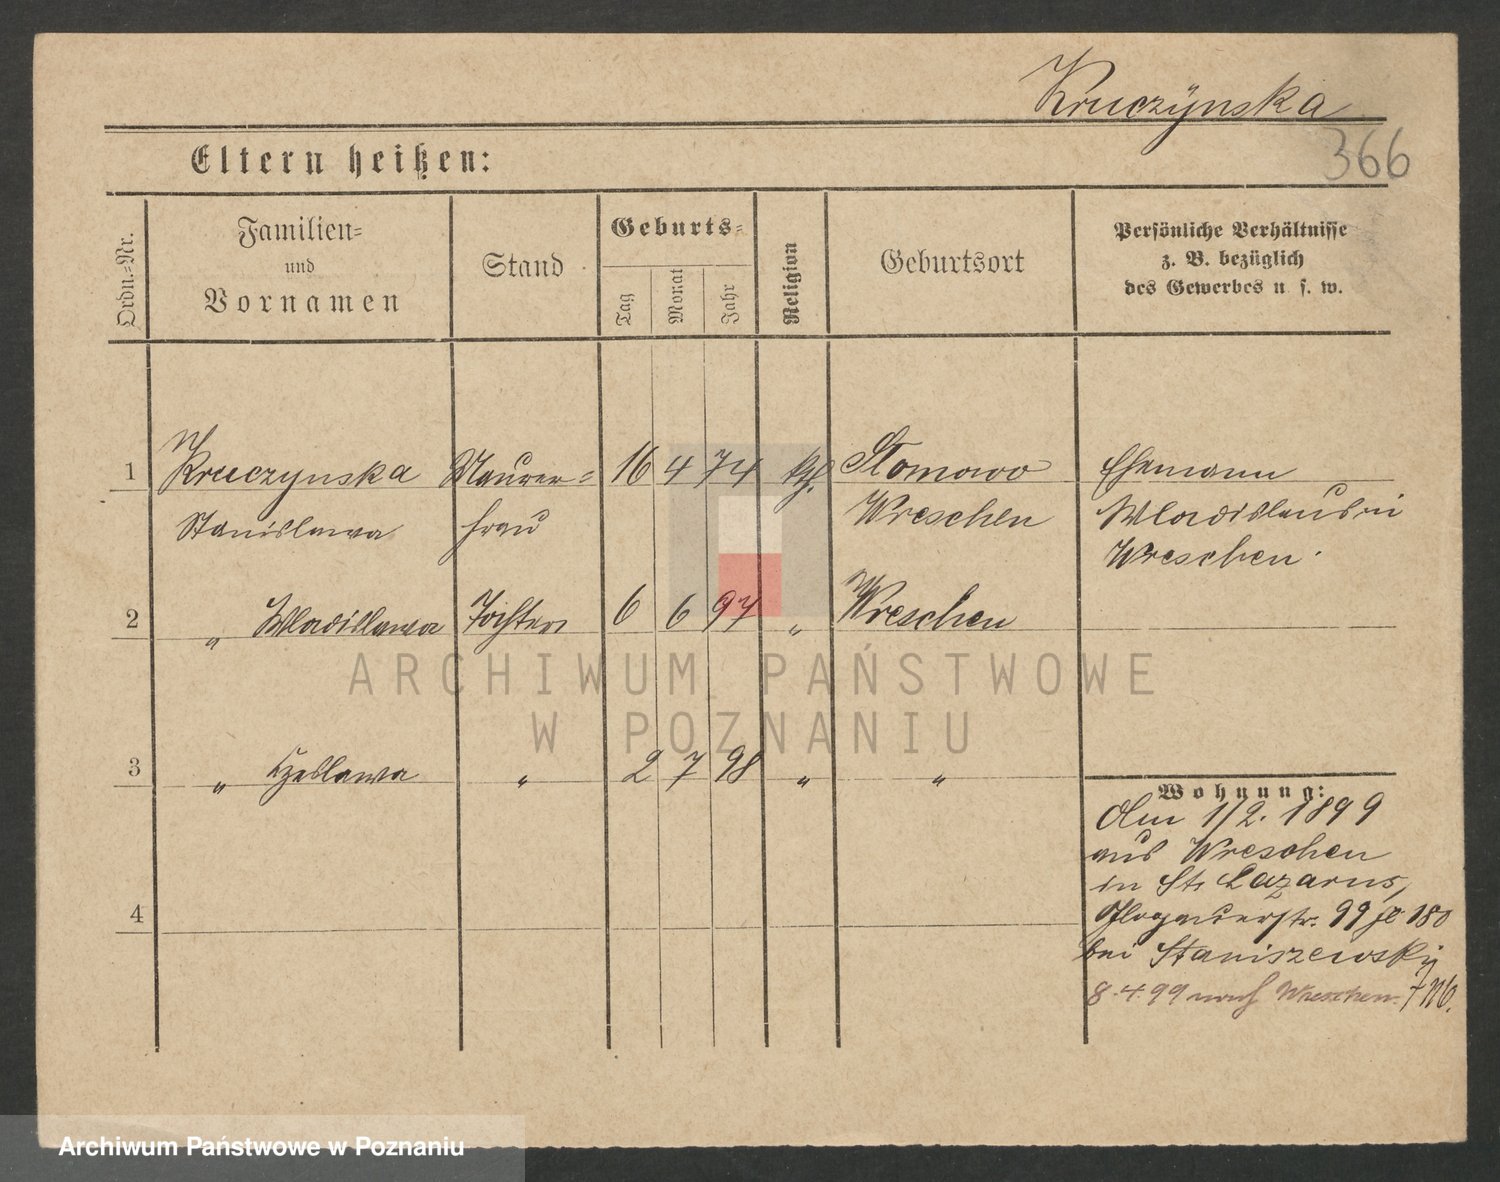 Kruczÿnska
366
Eltern heißen:
Ordn.=Nr.
Familien=
und
Vornamen
Stand
Geburts=
Tag
Monat
Jahr
Religion
Geburtsort
Persönliche Verhältnisse
z. B. bezüglich
des Gewerbes u. s. w.
1 Kruczynska Maurer= 16 4 74 kth. Slomowo Ehemann
Stanislawa frau Wreschen Wladislaus in
Wreschen.
2 " Wladislawa Tochter 6 6 97 " Wreschen
ARCHIWUM PAŃSTWOWE
W POZNANIU
3 " Czeslawa " 2 7 98 " "
Wohnung:
Am 1/2. 1899
aus Wreschen
in St. Lazarus,
Glogauerstr. 99 je 180
bei Staniszewsky
8.4.99 nach Wreschen.
4
Archiwum Państwowe w Poznaniu